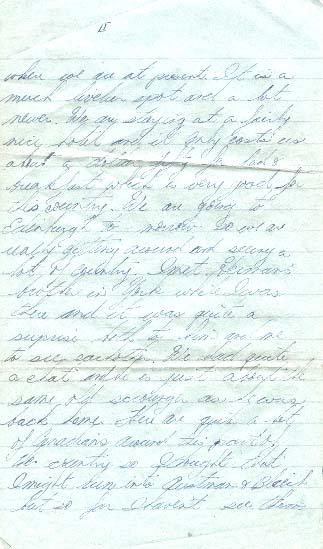 where we are at present. It is a
much livelier spot and a lot
newer. We are staying at a fairly
nice hotel and it only costs us
about a dollar fifty for bed &
breakfast which is very good for
this country. We are going to
Edinburgh to morrow so we are
really getting around and seeing a
lot of country. I met
brother in York while I was
there and it was quite a
surprise both to him and me
to see each other. We had quite
a chat and he is just about the
same old scrounger as he was
back home. There are quite a lot
of Canadians around this part of
the country so I thought that
I might run into
but so far I haven't see them